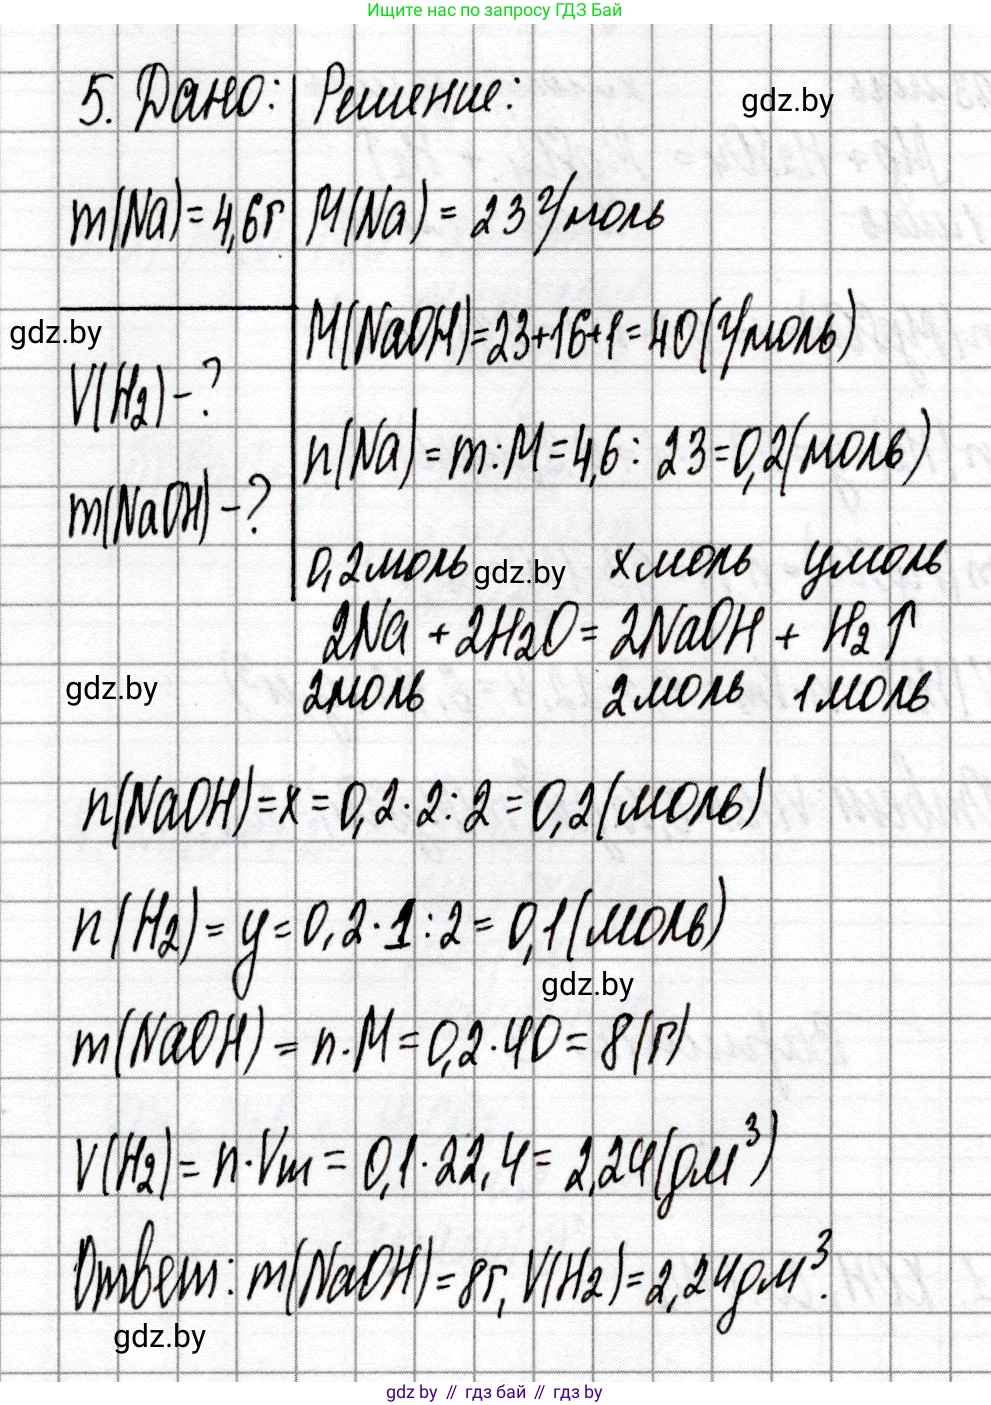 Ищите нас по запросу ГДЗ Бай
5. Дано:
Решение:
gdz.by
m(Na) = 4,6г
M(Na) = 23 г/моль
gdz.by
M(NaOH)=23+16+1=40(г/моль)
V(H₂) - ?
n(Na) = m:M = 4,6 : 23=0,2(моль)
m(NaOH) - ?
0,2моль gdz.by xмоль yмоль
2Na + 2H₂O = 2NaOH + H₂↑
gdz.by
2моль 2моль 1моль
n(NaOH) = x = 0,2·2:2 = 0,2(моль)
n(H₂) = y = 0,2·1:2 = 0,1(моль)
gdz.by
m(NaOH) = n·M = 0,2·40 = 8(г)
V(H₂) = n·Vm = 0,1·22,4 = 2,24(дм³)
Ответ: m(NaOH) = 8г, V(H₂) = 2,24дм³.
gdz.by
gdz by // гдз бай // гдз by